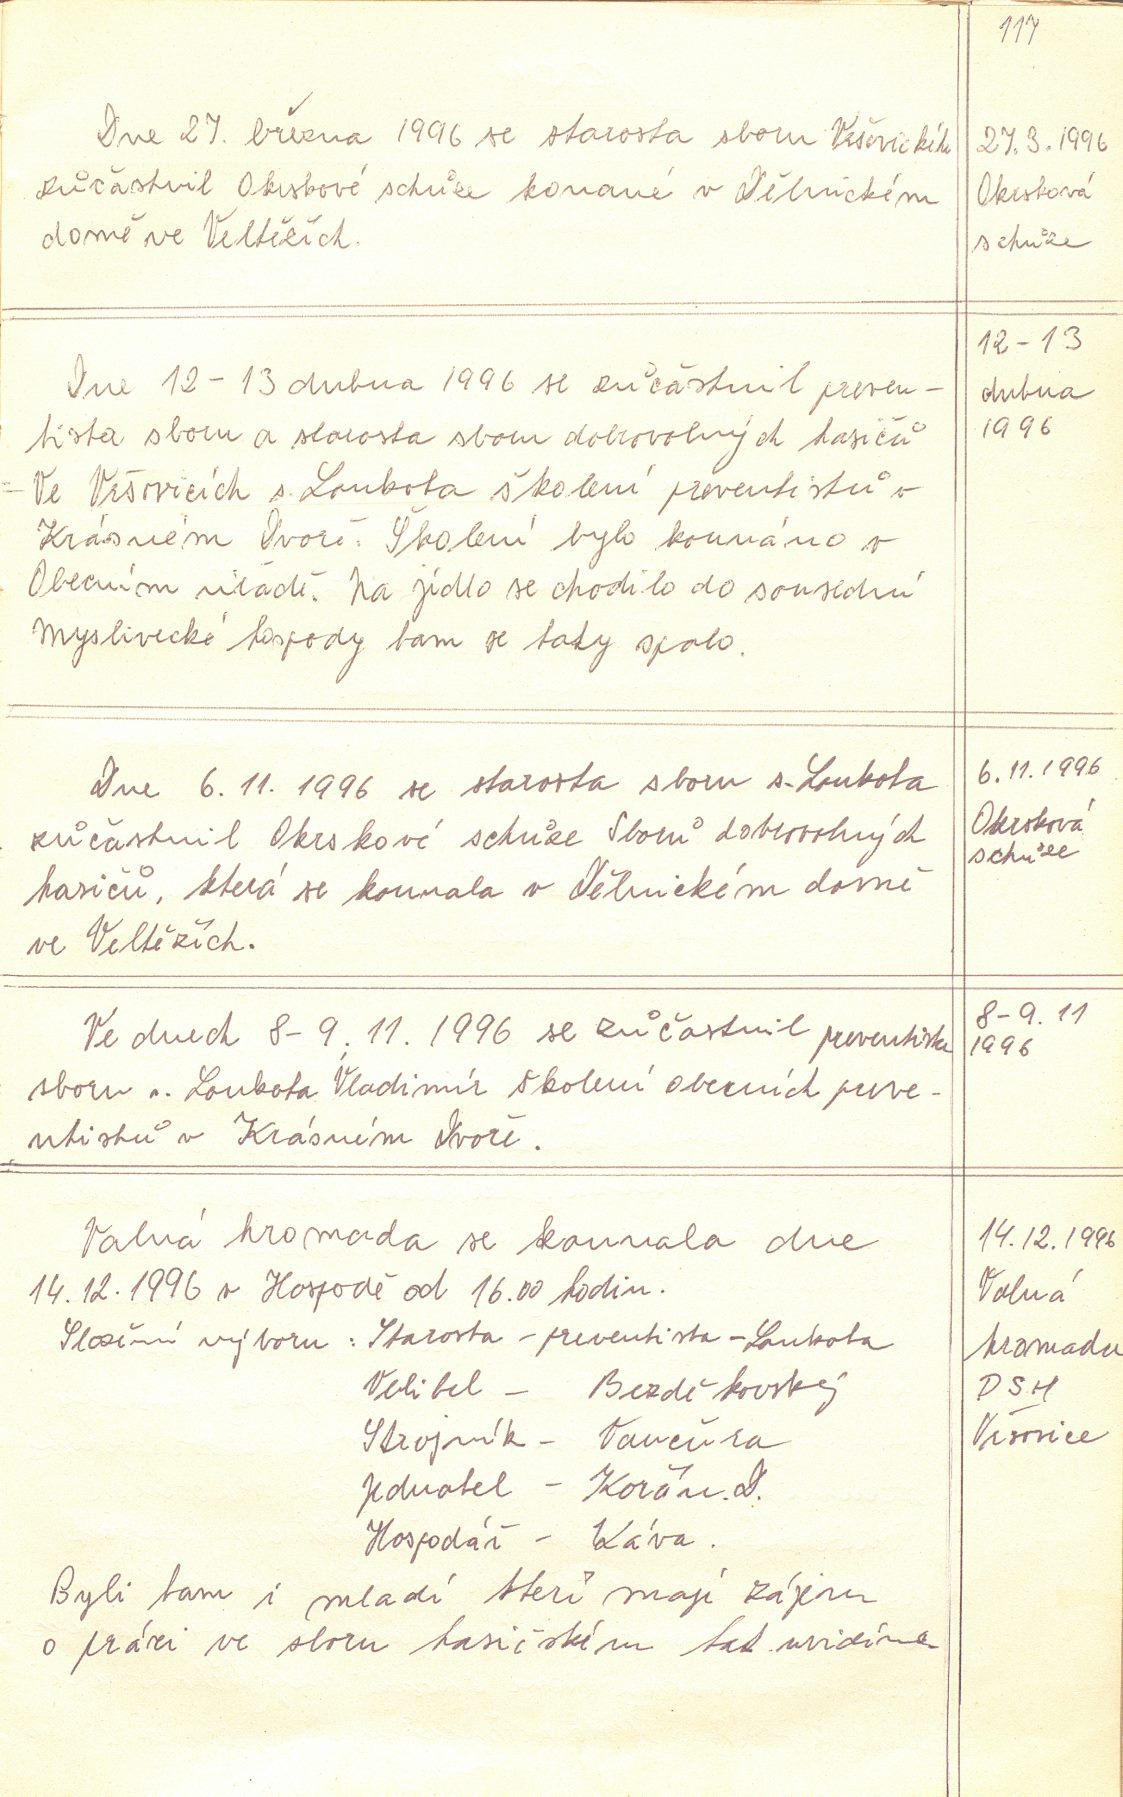 117
Dne 27. března 1996 se starosta sboru Vršovického
zůčastnil Okrskové schůze konané v Dělnickém
domě ve Veltěžích.
27.3.1996
Okrsková
schůze
Dne 12-13 dubna 1996 se zůčastnil preven-
tista sboru a starosta sboru dobrovolných hasičů
Ve Vršovicích s. Loukota školení preventistů v
Krásném Dvoře. Školení bylo konnáno v
Obecním úřadě. Na jídlo se chodilo do sousední
Myslivecké hospody tam se taky spalo.
12-13
dubna
1996
Dne 6. 11. 1996 se starosta sboru s. Loukota
zůčastnil Okrskové schůze Sborů dobrovolných
hasičů, která se konnala v Dělnickém domě
ve Veltěžích.
6.11.1996
Okrsková
schůze
Ve dnech 8-9. 11. 1996 se zůčastnil preventista
sboru s. Loukota Vladimír školení obecních preve-
ntistů v Krásném Dvoře.
8-9. 11
1996
Valná hromada se konnala dne
14.12.1996 v Hospodě od 16.00 hodin.
Složení výboru : Starosta - preventista - Loukota
Velitel - Bezděkovský
Strojník - Vančura
Jednatel - Korán. D.
Hospodář - Káva.
Byli tam i mladí kteří mají zájem
o práci ve sboru hasičském tak uvidíme
14.12.1996
Valná
hromada
DSH
Vršovice